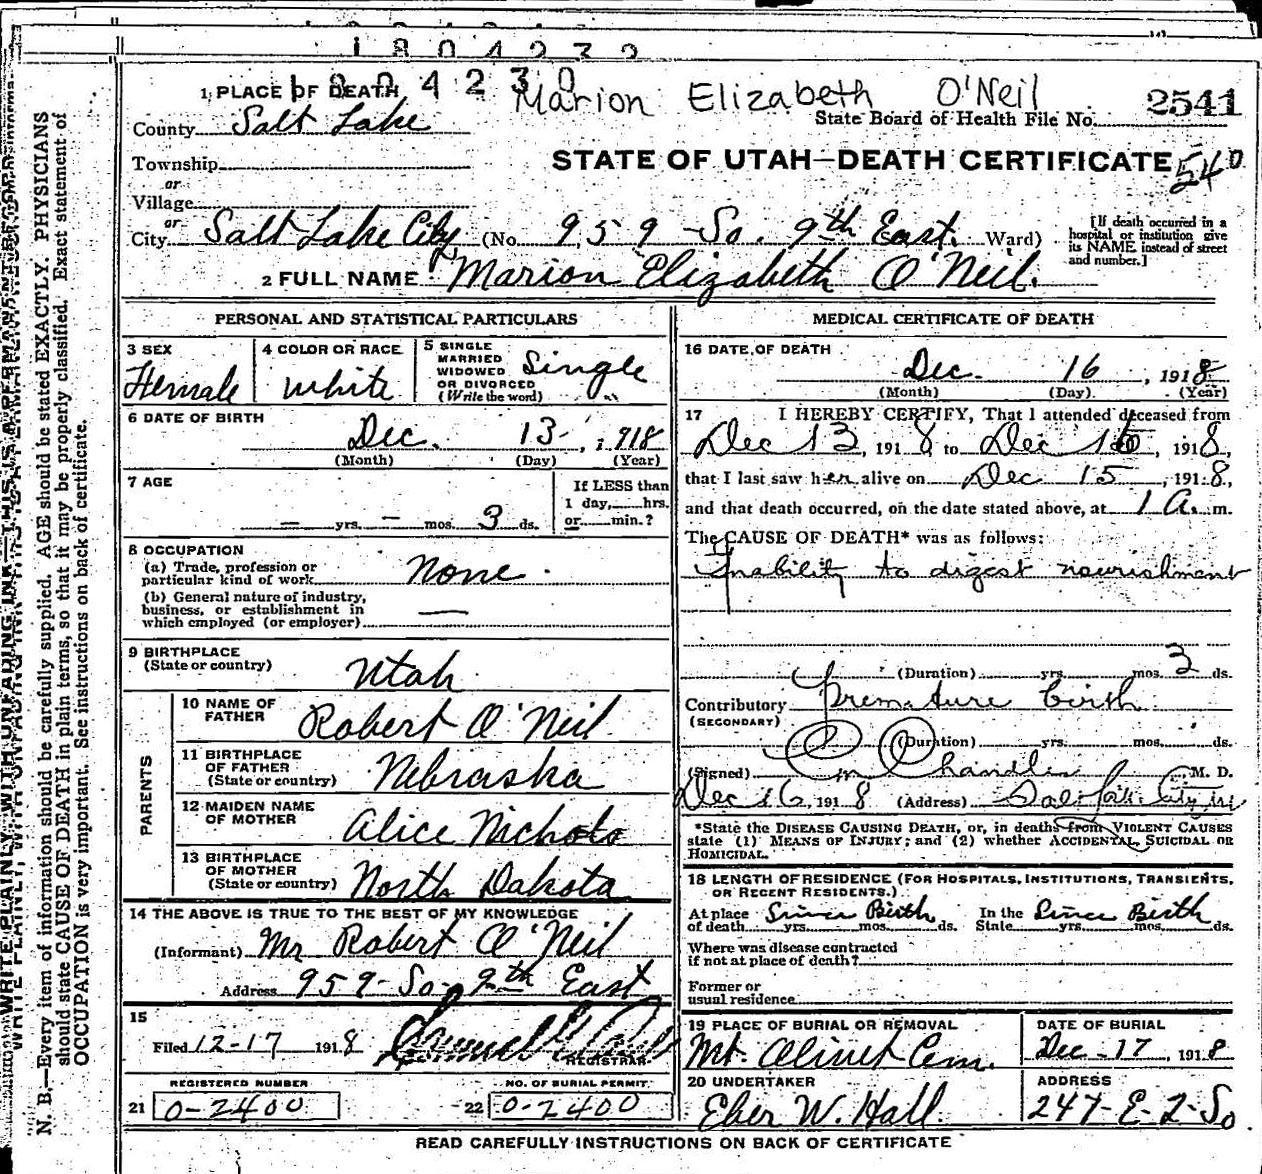 1 8 0 4 2 3 2
1 8 0 4 2 3 0
Marion Elizabeth O'Neil
1 PLACE OF DEATH
State Board of Health File No. 2541
County Salt Lake
STATE OF UTAH—DEATH CERTIFICATE 540
Township
or
Village
or
City Salt Lake City (No. 959 So. 9th East. Ward)
[If death occurred in a hospital or institution give its NAME instead of street and number.]
2 FULL NAME Marion Elizabeth O'Neil.
PERSONAL AND STATISTICAL PARTICULARS
3 SEX Female
4 COLOR OR RACE white
5 SINGLE MARRIED WIDOWED OR DIVORCED (Write the word) Single
6 DATE OF BIRTH
Dec. 13, 1918
(Month) (Day) (Year)
7 AGE
— yrs. — mos. 3 ds.
If LESS than
1 day,___hrs.
or___min.?
8 OCCUPATION
(a) Trade, profession or
particular kind of work None.
(b) General nature of industry,
business, or establishment in
which employed (or employer) —
9 BIRTHPLACE
(State or country) Utah
PARENTS
10 NAME OF FATHER Robert O'Neil
11 BIRTHPLACE OF FATHER (State or country) Nebraska
12 MAIDEN NAME OF MOTHER Alice Nichols
13 BIRTHPLACE OF MOTHER (State or country) North Dakota
14 THE ABOVE IS TRUE TO THE BEST OF MY KNOWLEDGE
(Informant) Mr Robert O'Neil
Address 959 - So - 9th East
15
Filed 12-17 1918
REGISTRAR
REGISTERED NUMBER
21 0-2400
NO. OF BURIAL PERMIT.
22 0-2400
MEDICAL CERTIFICATE OF DEATH
16 DATE OF DEATH
Dec. 16, 1918
(Month) (Day) (Year)
17 I HEREBY CERTIFY, That I attended deceased from
Dec 13, 1918 to Dec 16, 1918,
that I last saw her alive on Dec 15, 1918,
and that death occurred, on the date stated above, at 1 A. m.
The CAUSE OF DEATH* was as follows:
Inability to digest nourishment
(Duration) yrs. mos. 3 ds.
Contributory Premature birth
(SECONDARY)
(Duration) yrs. mos. ds.
(Signed) Chandler, M. D.
Dec 16, 1918 (Address) Salt Lake City
*State the DISEASE CAUSING DEATH, or, in deaths from VIOLENT CAUSES
state (1) MEANS OF INJURY; and (2) whether ACCIDENTAL, SUICIDAL OR
HOMICIDAL.
18 LENGTH OF RESIDENCE (FOR HOSPITALS, INSTITUTIONS, TRANSIENTS,
OR RECENT RESIDENTS.)
At place of death Since Birth yrs. mos. ds. In the State Since Birth yrs. mos. ds.
Where was disease contracted
if not at place of death?
Former or
usual residence
19 PLACE OF BURIAL OR REMOVAL
Mt. Olivet Cem.
DATE OF BURIAL
Dec-17, 1918
20 UNDERTAKER
Eber W. Hall.
ADDRESS
247-E-2-So
READ CAREFULLY INSTRUCTIONS ON BACK OF CERTIFICATE
WRITE PLAINLY, WITH UNFADING INK—THIS IS A PERMANENT
N. B.—Every item of information should be carefully supplied. AGE should be stated EXACTLY. PHYSICIANS
should state CAUSE OF DEATH in plain terms, so that it may be properly classified. Exact statement of
OCCUPATION is very important. See instructions on back of certificate.